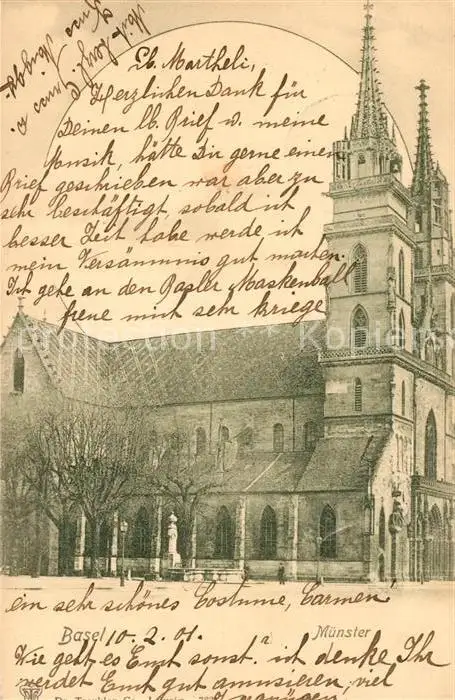 Lb. Martheli,
Herzlichen Dank für
Deinen lb. Brief u. meine
Musik, hätte Dir gerne einen
Brief geschrieben war aber zu
sehr beschäftigt, sobald ich
besser Zeit habe werde ich
mein Versäumnis gut machen.
Ich gehe an den Basler Maskenball
freue mich sehr kriege
ein sehr schönes Costume, Carmen
Basel 10. 2. 01. Münster
Wie geht es Euch sonst. ich denke Ihr
werdet Euch gut amusieren, viel
Vergnügen